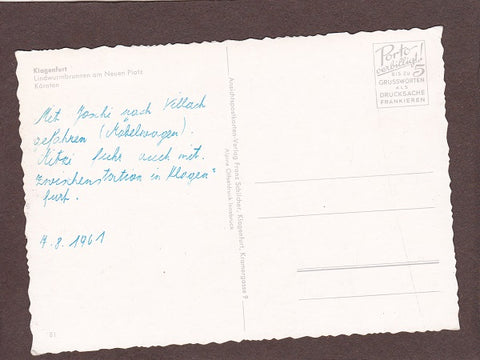 Klagenfurt
Lindwurmbrunnen am Neuen Platz
Kärnten
Mit Joschi nach Villach
gefahren (Möbelwagen).
Mitzi fuhr auch mit.
Zwischenstation in Klagen=
furt.
7.8.1961
Porto
verbilligt!
BIS ZU 5
GRUSSWORTEN
ALS
DRUCKSACHE
FRANKIEREN
Ansichtspostkarten-Verlag Franz Schilcher, Klagenfurt, Kramergasse 9
Alpina Offsetdruck Innsbruck